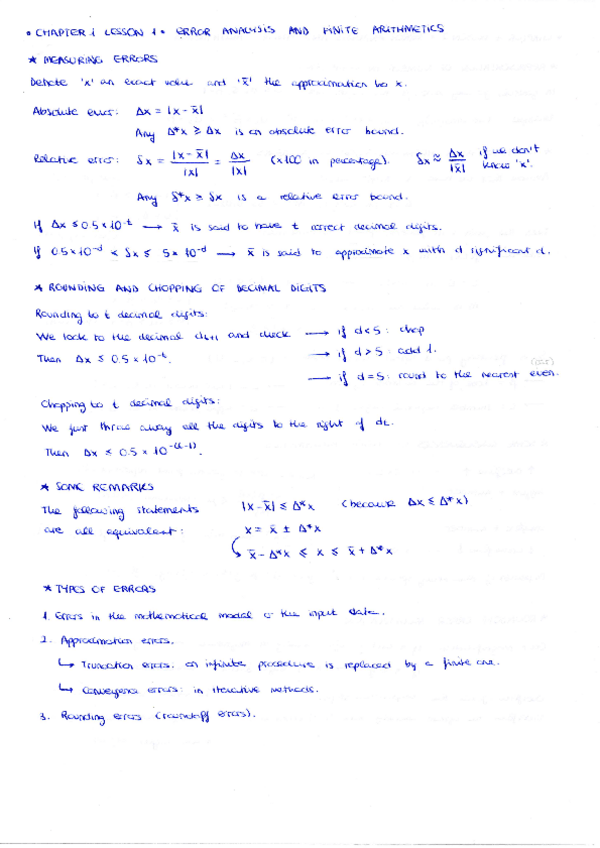 • CHAPTER 1 LESSON 1 • ERROR ANALYSIS AND FINITE ARITHMETICS
★ MEASURING ERRORS
Denote 'x' an exact value and 'x̄' the approximation to x.
Absolute error: Δx = |x - x̄|
Any Δ*x ≥ Δx is an absolute error bound.
Relative error: δx = |x - x̄| / |x| = Δx / |x| (x100 in percentage). δx ≈ Δx / |x̄| if we don't know 'x'.
Any δ*x ≥ δx is a relative error bound.
If Δx ≤ 0.5 × 10^-t → x̄ is said to have t correct decimal digits.
If 0.5 × 10^-d < δx ≤ 5 × 10^-d → x̄ is said to approximate x with d significant d.
★ ROUNDING AND CHOPPING OF DECIMAL DIGITS
Rounding to t decimal digits:
We look to the decimal d_t+1 and check → if d < 5 : chop
Then Δx ≤ 0.5 × 10^-t. → if d > 5 : add 1.
→ if d = 5 : round to the nearest even.
Chopping to t decimal digits:
We just throw away all the digits to the right of d_t.
Then Δx ≤ 0.5 × 10^-(t-1).
★ SOME REMARKS
The following statements |x - x̄| ≤ Δ*x (because Δx ≤ Δ*x)
are all equivalent: x = x̄ ± Δ*x
x̄ - Δ*x ≤ x ≤ x̄ + Δ*x
★ TYPES OF ERRORS
1. Errors in the mathematical model or the input data.
2. Approximation errors.
↳ Truncation errors: an infinite procedure is replaced by a finite one.
↳ Convergence errors: in iterative methods.
3. Rounding errors (roundoff errors).